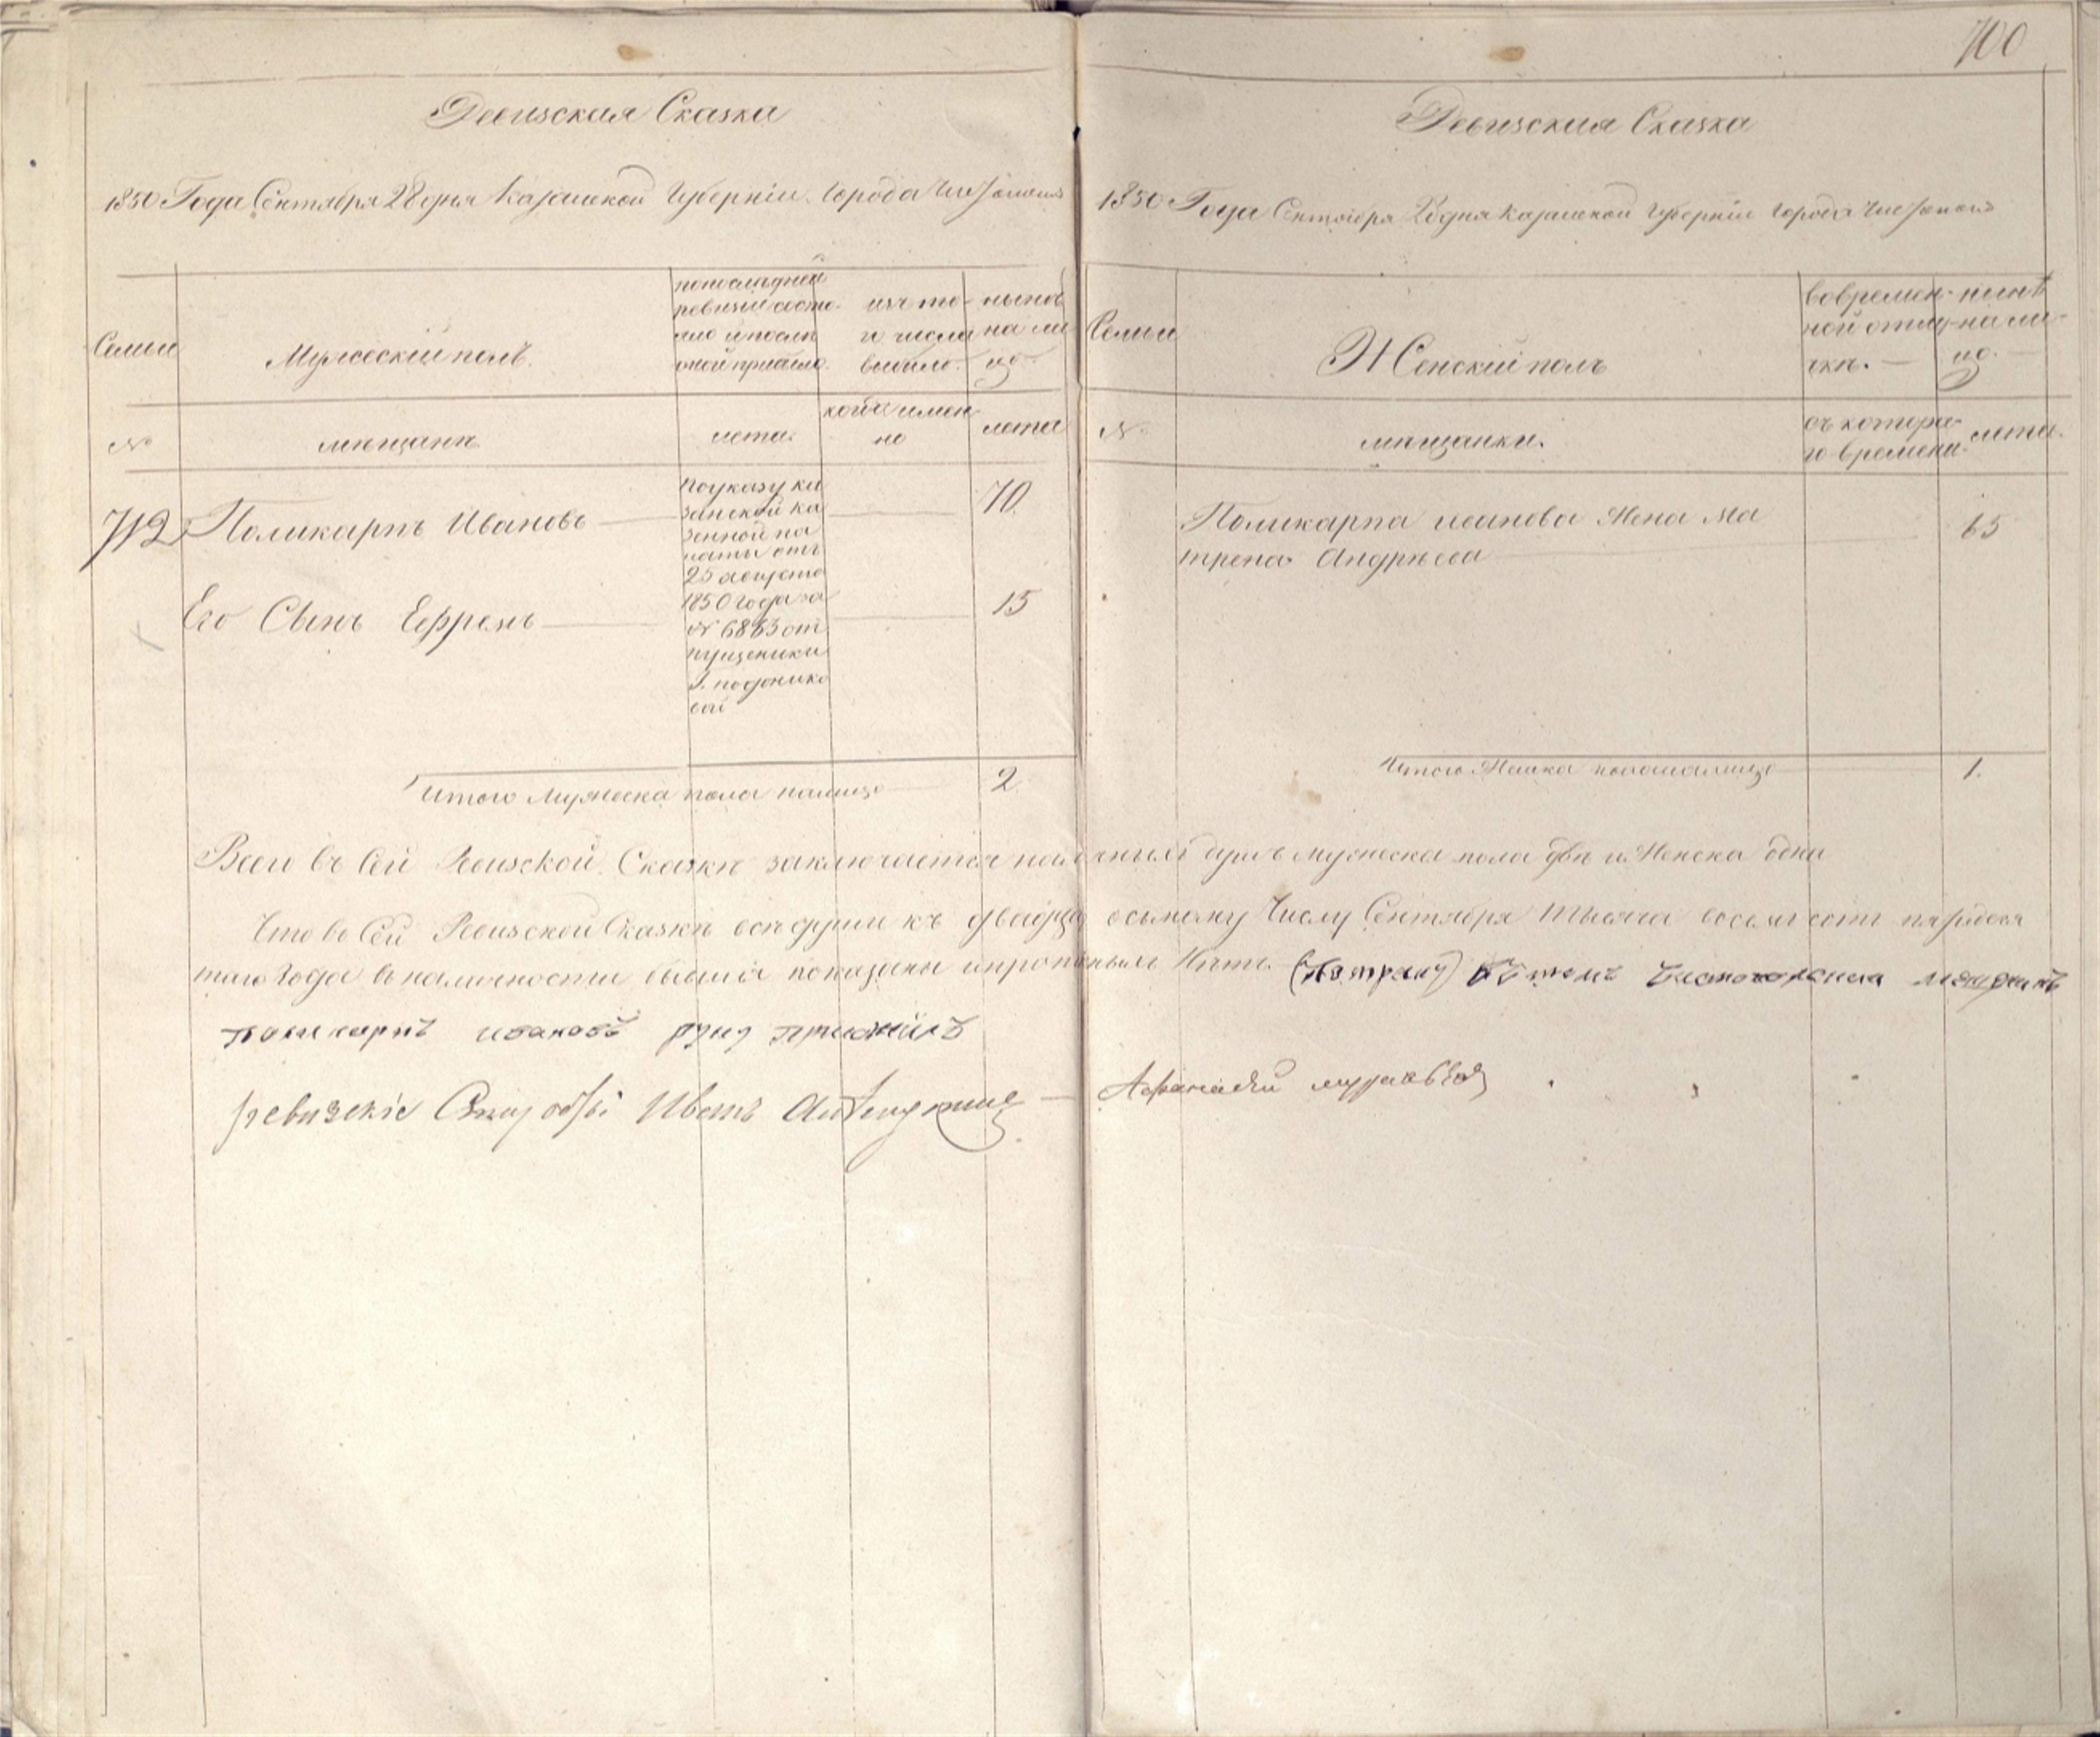 700
Ревизская Сказка
1850 Года Сентября 28 дня Казанской Губернiи Города Чистополя
Семьи
Мужескiй полъ.
по последней
ревизiи состо-
яло и после
оной прибыло.
изъ то-
го числа
выбыло.
ныне
на ли-
цо.
№
мещане
лета.
когда имен-
но
лета
712
Поликарпъ Ивановъ
По указу ка
занской ка
зенной па
латы отъ
25 августа
1850 года за
№ 6883 от
пущеники
Г.
70
Его Сынъ Ефремъ
15
Итого Мужеска пола налицо
2
Ревизская Сказка
1850 Года Сентября 28 дня Казанской Губернiи Города Чистополя
Семьи
Женскiй полъ
во времен-
ной отлу-
чкѣ.
нынѣ
на ли-
цо.
№
мѣщанки.
съ котора-
го времени
лета.
Поликарпа Иванова Жена Ма
трена Андрѣева
65
Итого Женска пола налицо
1.
Всего въ Сей Ревизской Сказкѣ заключается наличныхъ душъ мужеска пола двѣ и Женска одна
Что въ Сей Ревизской Сказкѣ все души къ двадцать осьмому Числу Сентября Тысяча восемь сотъ пятидеся
таго Года в наличности бывшiя показаны и
поликарпъ ивановъ руку приложилъ
ревизскiе Сказки Иванъ
Афанасiй